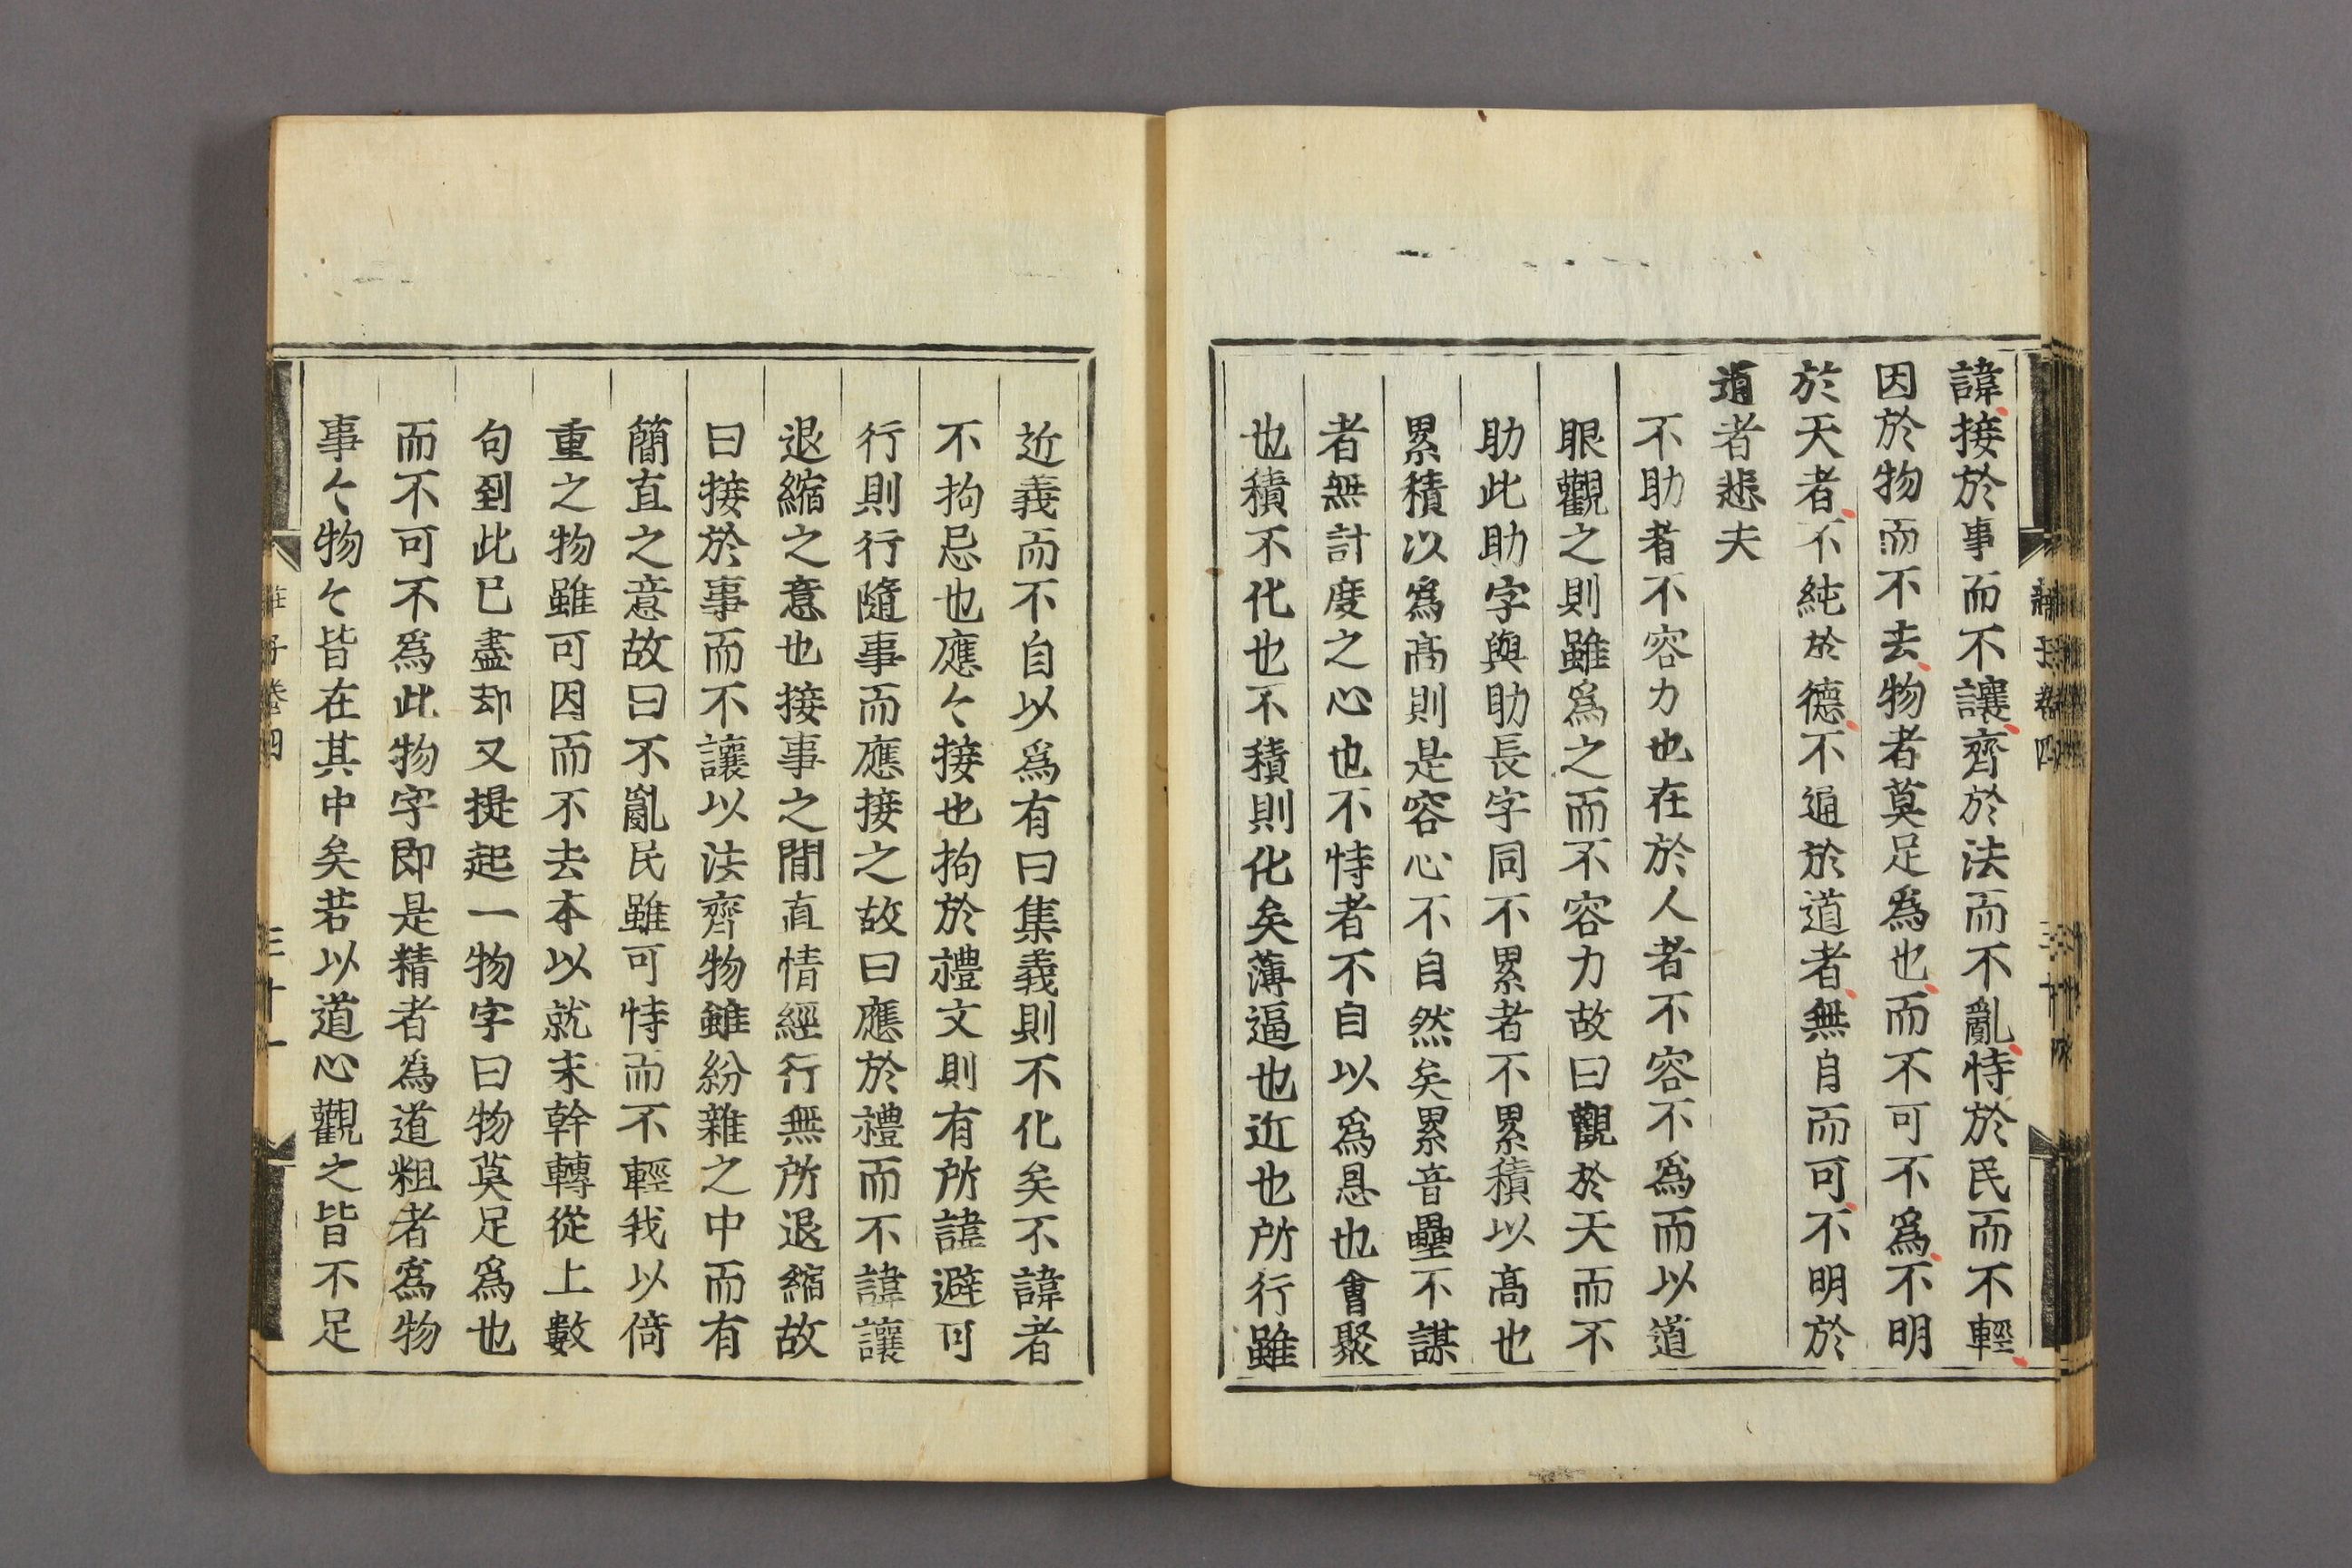 諱接於事而不讓齊於法而不亂恃於民而不輕
因於物而不去物者莫足爲也而不可不爲不明
於天者不純於德不通於道者無自而可不明於
道者悲夫
不助者不容力也在於人者不容不爲而以道
眼觀之則雖爲之而不容力故曰觀於天而不
助此助字與助長字同不累者不累積以高也
累積以爲高則是容心不自然矣累音壘不謀
者無計度之心也不恃者不自以爲恩也會聚
也積不化也不積則化矣薄逼也近也所行雖
近義而不自以爲有曰集義則不化矣不諱者
不拘忌也應々接也拘於禮文則有所諱避可
行則行隨事而應接之故曰應於禮而不諱讓
退縮之意也接事之間直情經行無所退縮故
曰接於事而不讓以法齊物雖紛雜之中而有
簡直之意故曰不亂民雖可恃而不輕我以倚
重之物雖可因而不去本以就末幹轉從上數
句到此已盡却又提起一物字曰物莫足爲也
而不可不爲此物字即是精者爲道粗者爲物
事々物々皆在其中矣若以道心觀之皆不足
莊子卷四
三十一